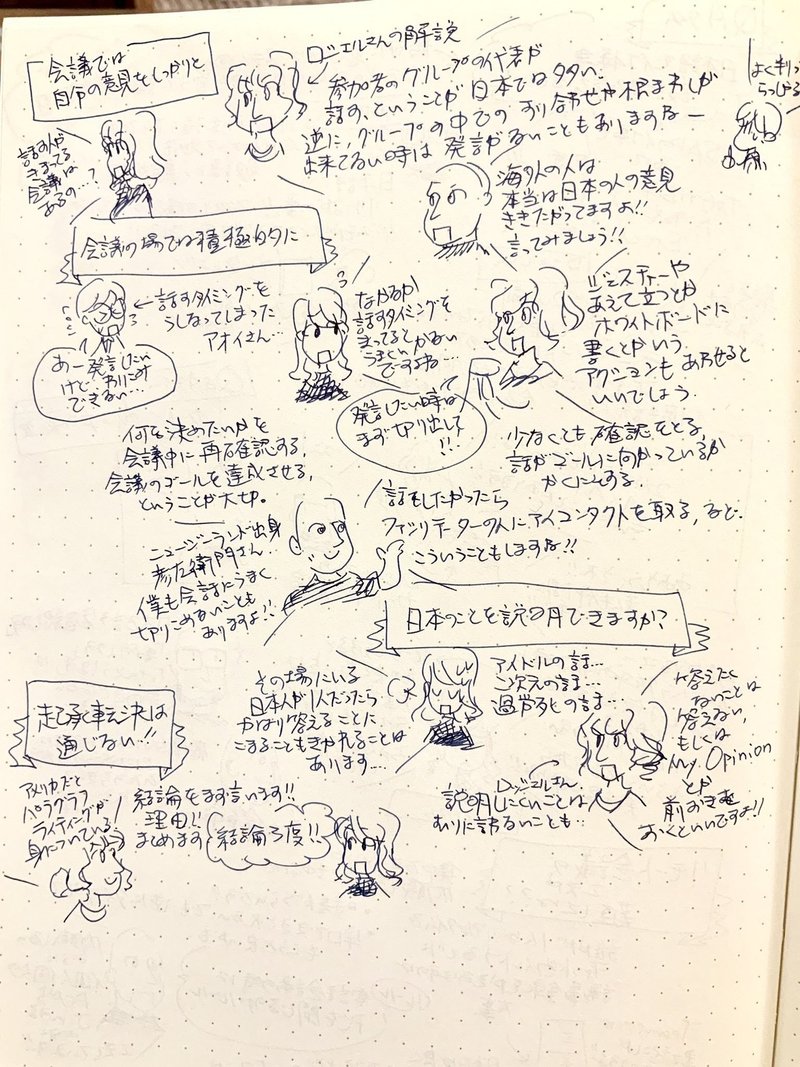 会議では
自分の意見をしっかりと
ロジェルさんの解説
参加者のグループの代表が
話す、ということが日本では多い。
逆に、グループの中でのすり合わせや根まわしが
出来てない時は発言がないこともありますなー
話す人が
きまってる
会議は
あるの…?
海外の人は
本当は日本の人の意見
ききたがってますよ!!
言ってみましょう!!
会議の場では積極的に
話すタイミングを
うしなってしまった
アオイさん…
あー発言したい
けど、わりこみ
できない…
なかなか
話すタイミングを
まってるとかない
うまくい
ですよね…
ジェスチャーや
あえて立つとか
ホワイトボードに
書くとかいう
アクションもあわせると
いいでしょう
発言したい時は
まず切り出して
!!!
少なくても確認をとる。
話がゴールに向かっているか
かくにんする。
何を決めたいかを
会議中に再確認する。
会議のゴールを達成させる、
ということが大切。
話をしたかったら
ファシリテーターの人にアイコンタクトを取る、など。
こういうこともしますな!!
ニュージーランド出身
彦左衛門さん…
僕も会話にうまく
切りこめないことも
ありますよ!!
日本のことを説明できますか?
その場にいる
日本人が1人だったら
かなり答えることに
こまることもきかれることは
あります…
アイドルの話…
二次元の話…
過労死の話…
答えたく
ないことは
答えない、
もしくは
My Opinion
とか
前おきを
おくといいですよ!!
ロジェルさん
説明しにくいことは
むりに話さないことも…
起承転決は
通じない!!
アメリカだと
パラグラフ
ライティングが
身についている
結論をまず言います!!
理由!!
まとめます
結論3度!!